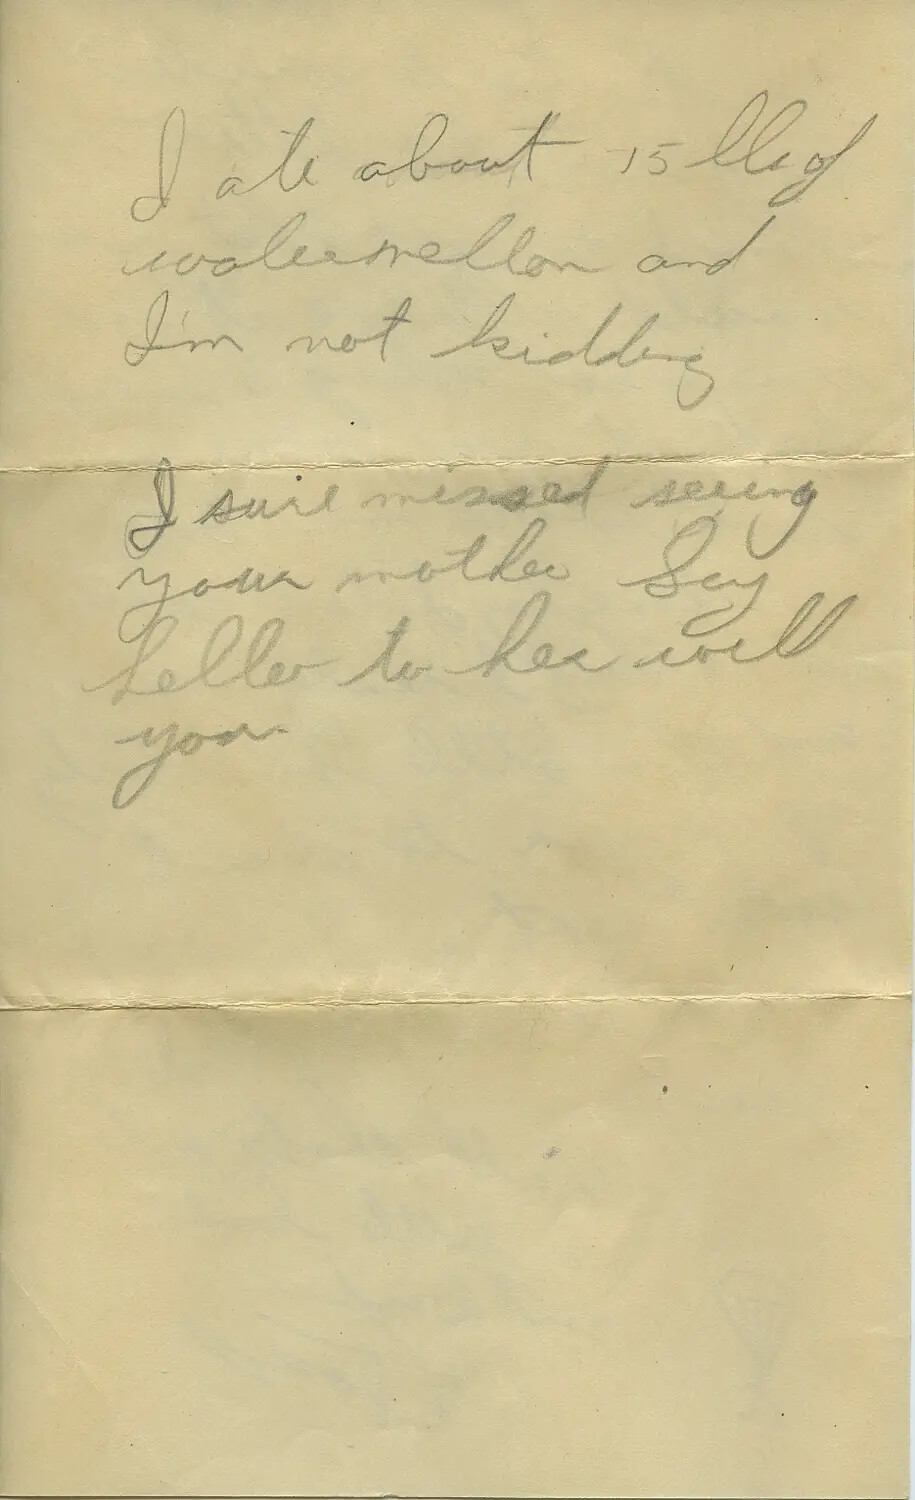 I ate about 15 lbs of
watermellon and
I'm not kidding
I sure missed seeing
your mother Say
hello to her will
you.